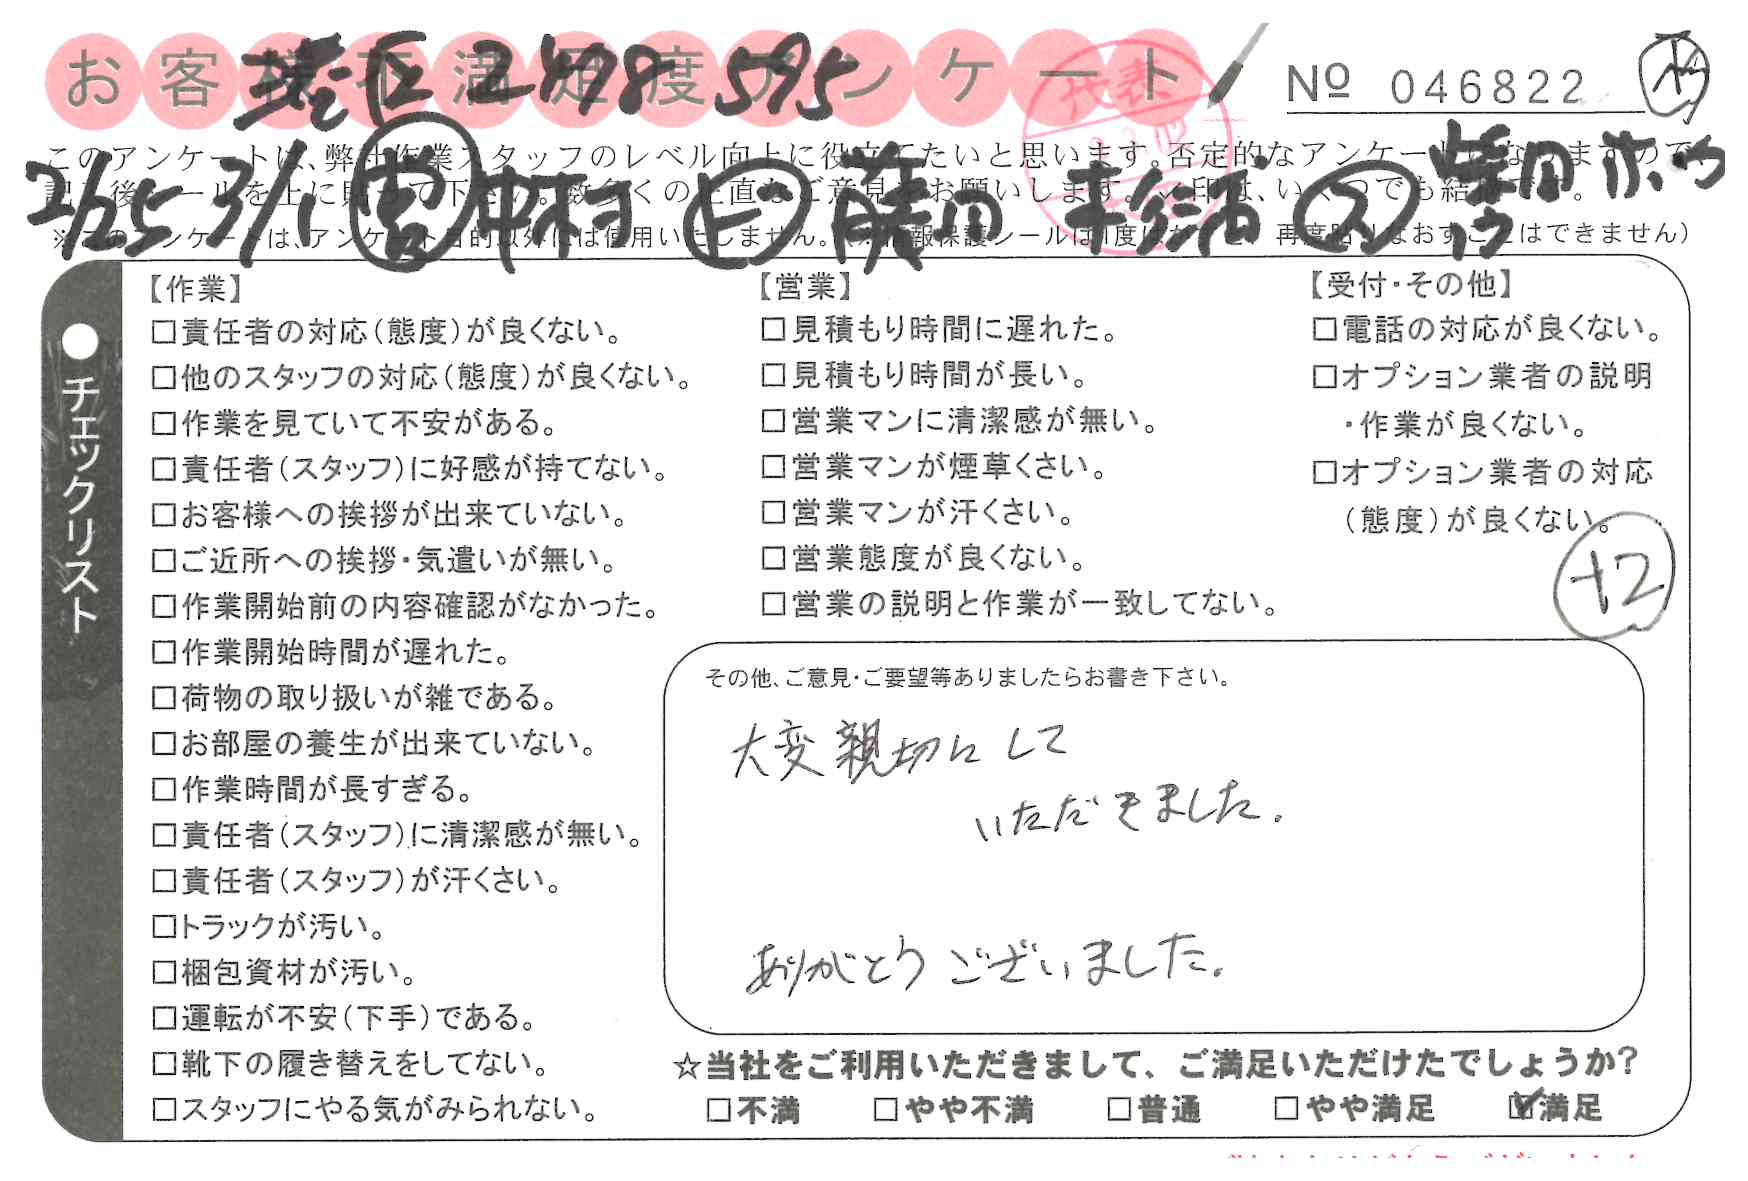 お客様不満足度アンケート
港区 2478595
№ 046822
このアンケートは、弊社作業スタッフのレベル向上に役立てたいと思います。否定的なアンケートになりますので、
記入後シールを上に貼って下さい。数多くの正直なご意見をお願いします。✓印は、いくつでも結構です。
2025 3/1 営 中村 上 藤田
※このアンケートは、アンケート目的以外には使用いたしません。(※情報保護シールは1度はがすと、再度貼りなおすことはできません)
代表
●チェックリスト
【作業】
□責任者の対応(態度)が良くない。
□他のスタッフの対応(態度)が良くない。
□作業を見ていて不安がある。
□責任者(スタッフ)に好感が持てない。
□お客様への挨拶が出来ていない。
□ご近所への挨拶・気遣いが無い。
□作業開始前の内容確認がなかった。
□作業開始時間が遅れた。
□荷物の取り扱いが雑である。
□お部屋の養生が出来ていない。
□作業時間が長すぎる。
□責任者(スタッフ)に清潔感が無い。
□責任者(スタッフ)が汗くさい。
□トラックが汚い。
□梱包資材が汚い。
□運転が不安(下手)である。
□靴下の履き替えをしてない。
□スタッフにやる気がみられない。
【営業】
□見積もり時間に遅れた。
□見積もり時間が長い。
□営業マンに清潔感が無い。
□営業マンが煙草くさい。
□営業マンが汗くさい。
□営業態度が良くない。
□営業の説明と作業が一致してない。
【受付・その他】
□電話の対応が良くない。
□オプション業者の説明
・作業が良くない。
□オプション業者の対応
(態度)が良くない。
+2
その他、ご意見・ご要望等ありましたらお書き下さい。
大変親切にして
いただきました.
ありがとうございました.
☆当社をご利用いただきまして、ご満足いただけたでしょうか?
□不満 □やや不満 □普通 □やや満足 ☑満足